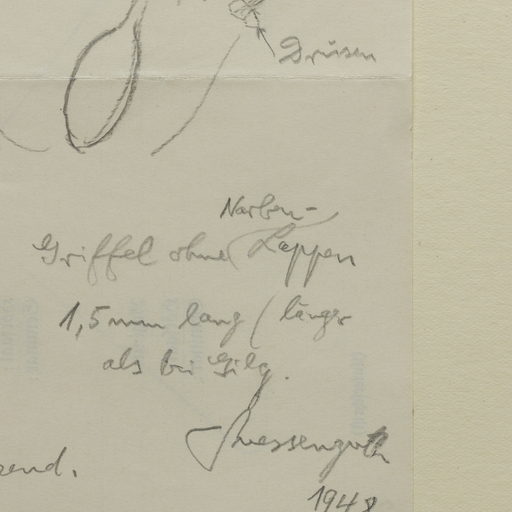 Drüsen
Narben-
Griffel ohne Lappen
1,5 mm lang (länger
als bei Gilg.
Suessenguth
1948